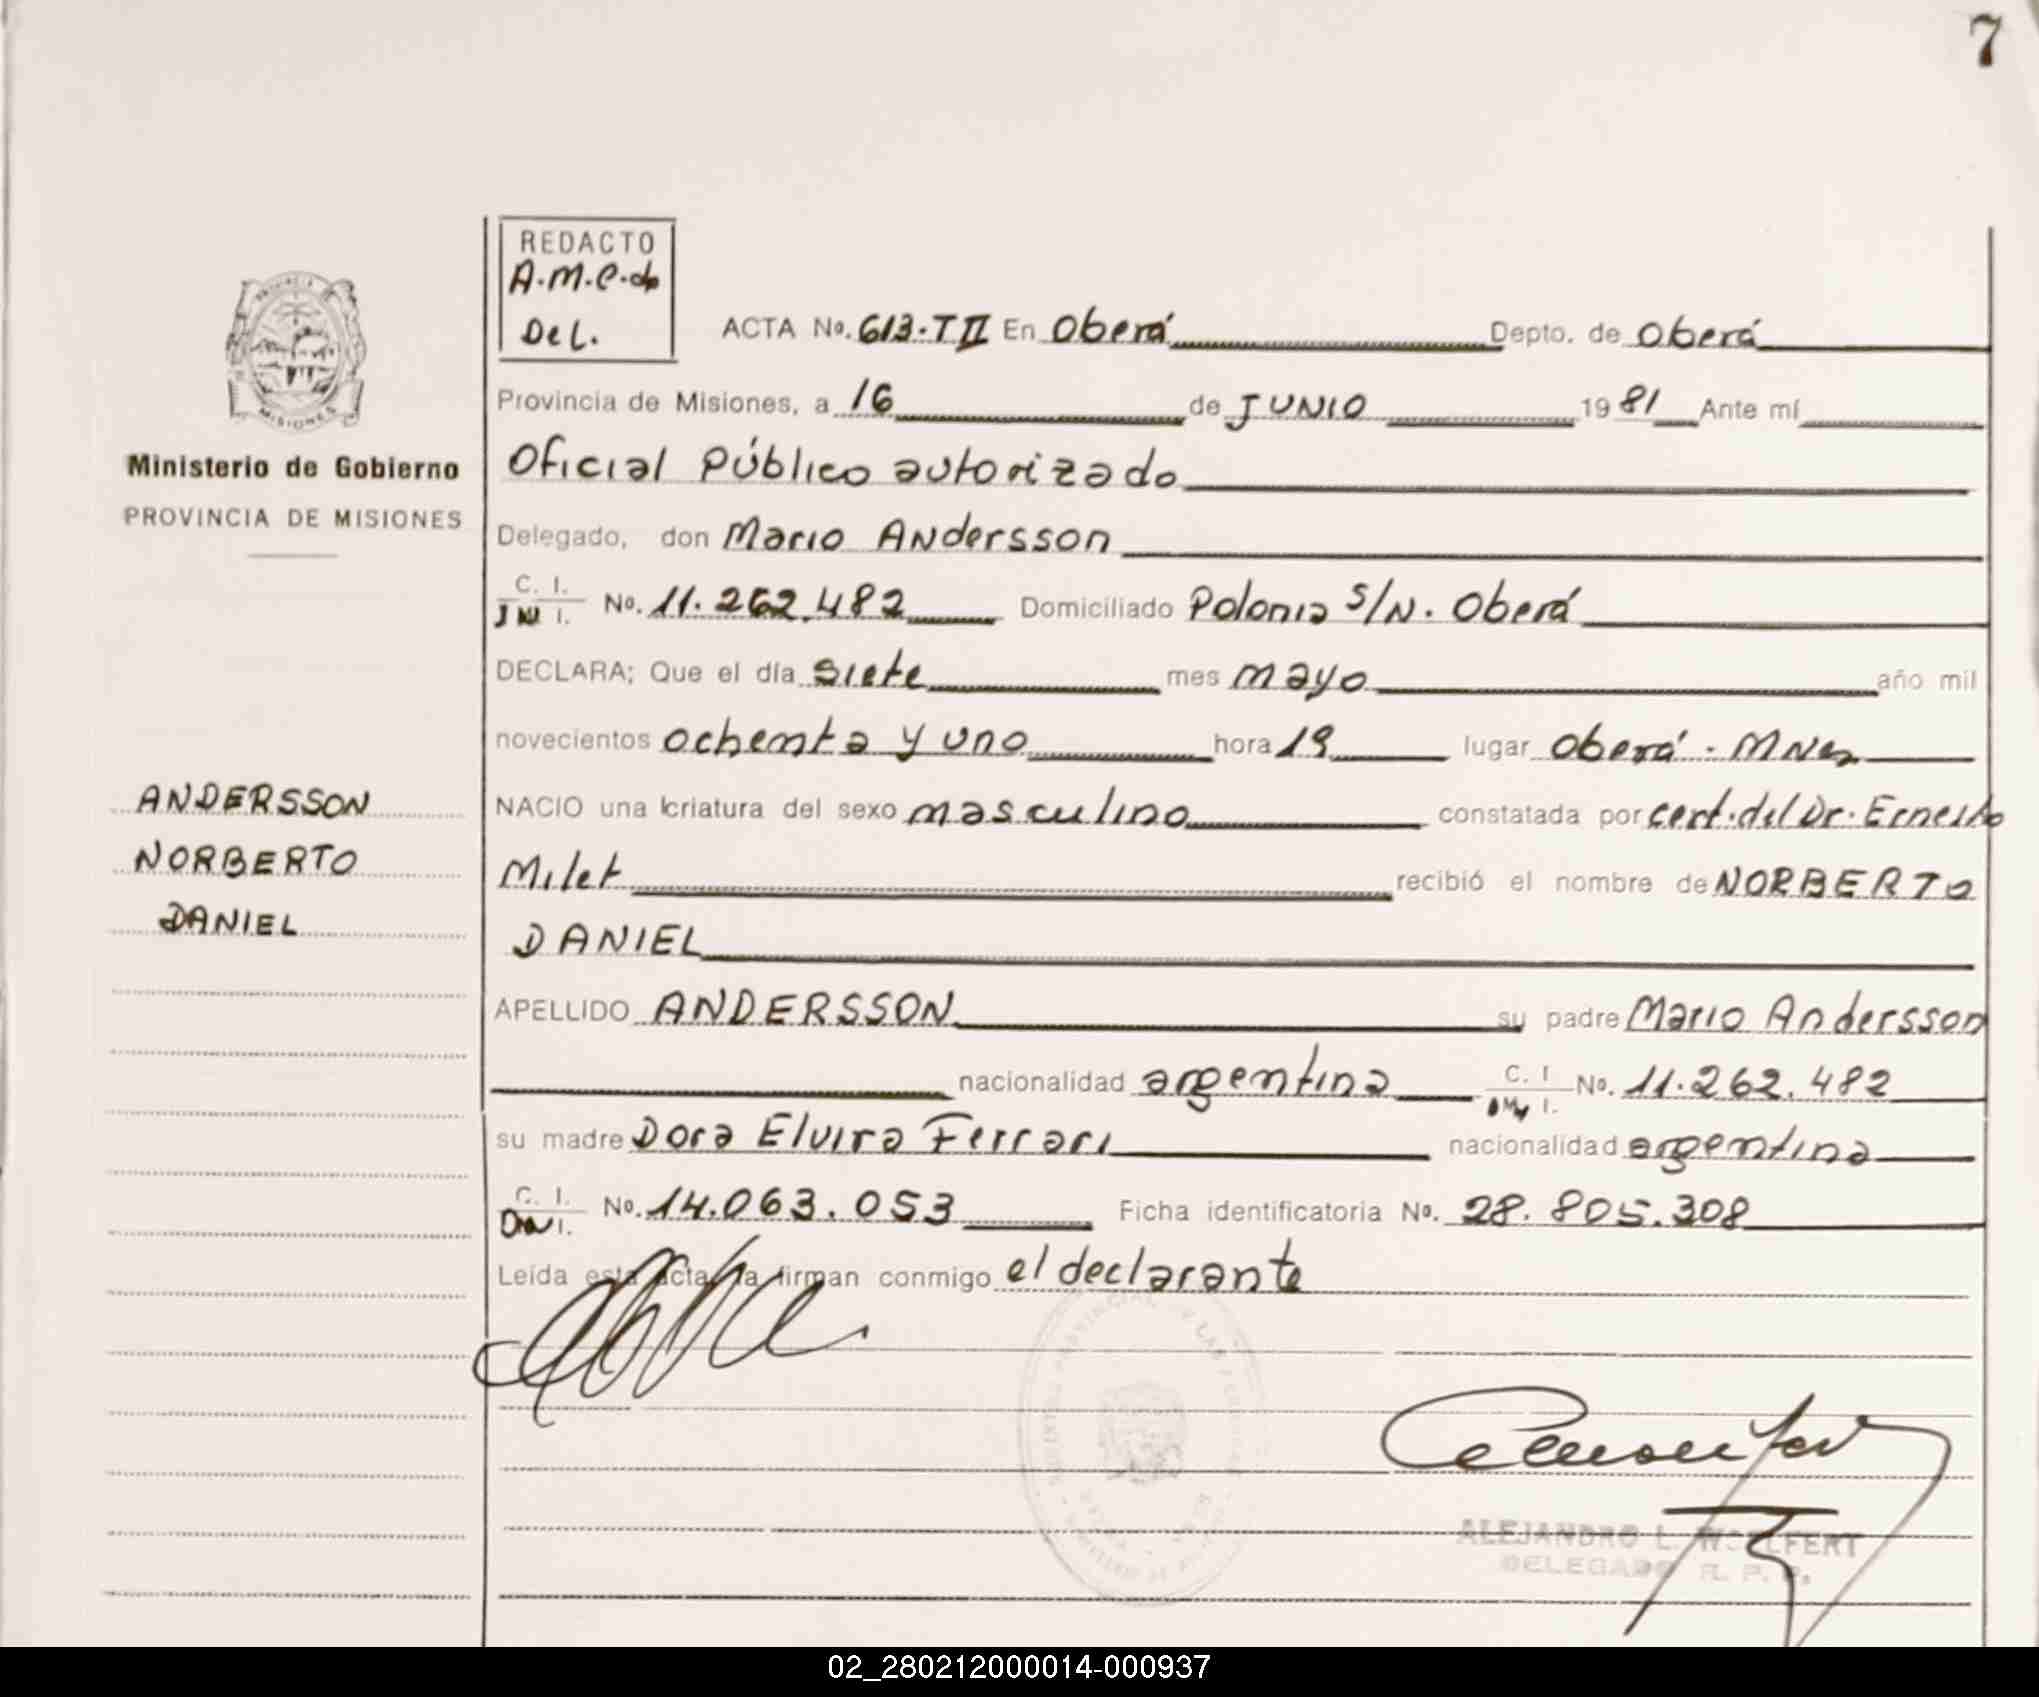 7
REDACTO
A.M.C.de
Del.
ACTA No. 613-TII En Oberá Depto. de Oberá
Provincia de Misiones, a 16 de JUNIO 1981 Ante mí
Oficial Público autorizado
Delegado, don Mario Andersson
C. I.
I. No. 11.262.482 Domiciliado Polonia S/N. Oberá
DECLARA; Que el día siete mes mayo año mil
novecientos ochenta y uno hora 19 lugar Oberá - MNes
NACIO una criatura del sexo masculino constatada por cert. del Dr. Ernesto
Milet recibió el nombre de NORBERTO
DANIEL
APELLIDO ANDERSSON su padre Mario Andersson
nacionalidad argentina C. I. No. 11.262.482
I.
su madre Dora Elvira Ferrari nacionalidad argentina
C. I.
DNI. No. 14.063.053 Ficha identificatoria No. 28.805.308
Leída esta acta la firman conmigo el declarante
ALEJANDRO L. WOLFERT
DELEGADO R. P. P.
MISIONES
Ministerio de Gobierno
PROVINCIA DE MISIONES
ANDERSSON
NORBERTO
DANIEL
02_280212000014-000937